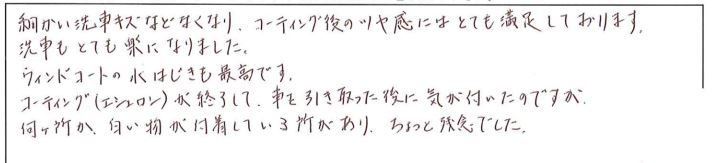 細かい洗車キズなどなくなり、コーティング後のツヤ感にはとても満足しております。
洗車もとても楽になりました。
ウィンドコートの水はじきも最高です。
コーティング(エシュロン)が終了して、車を引き取った後に気が付いたのですが、
何ヶ所か、白い物が付着している所があり、ちょっと残念でした。